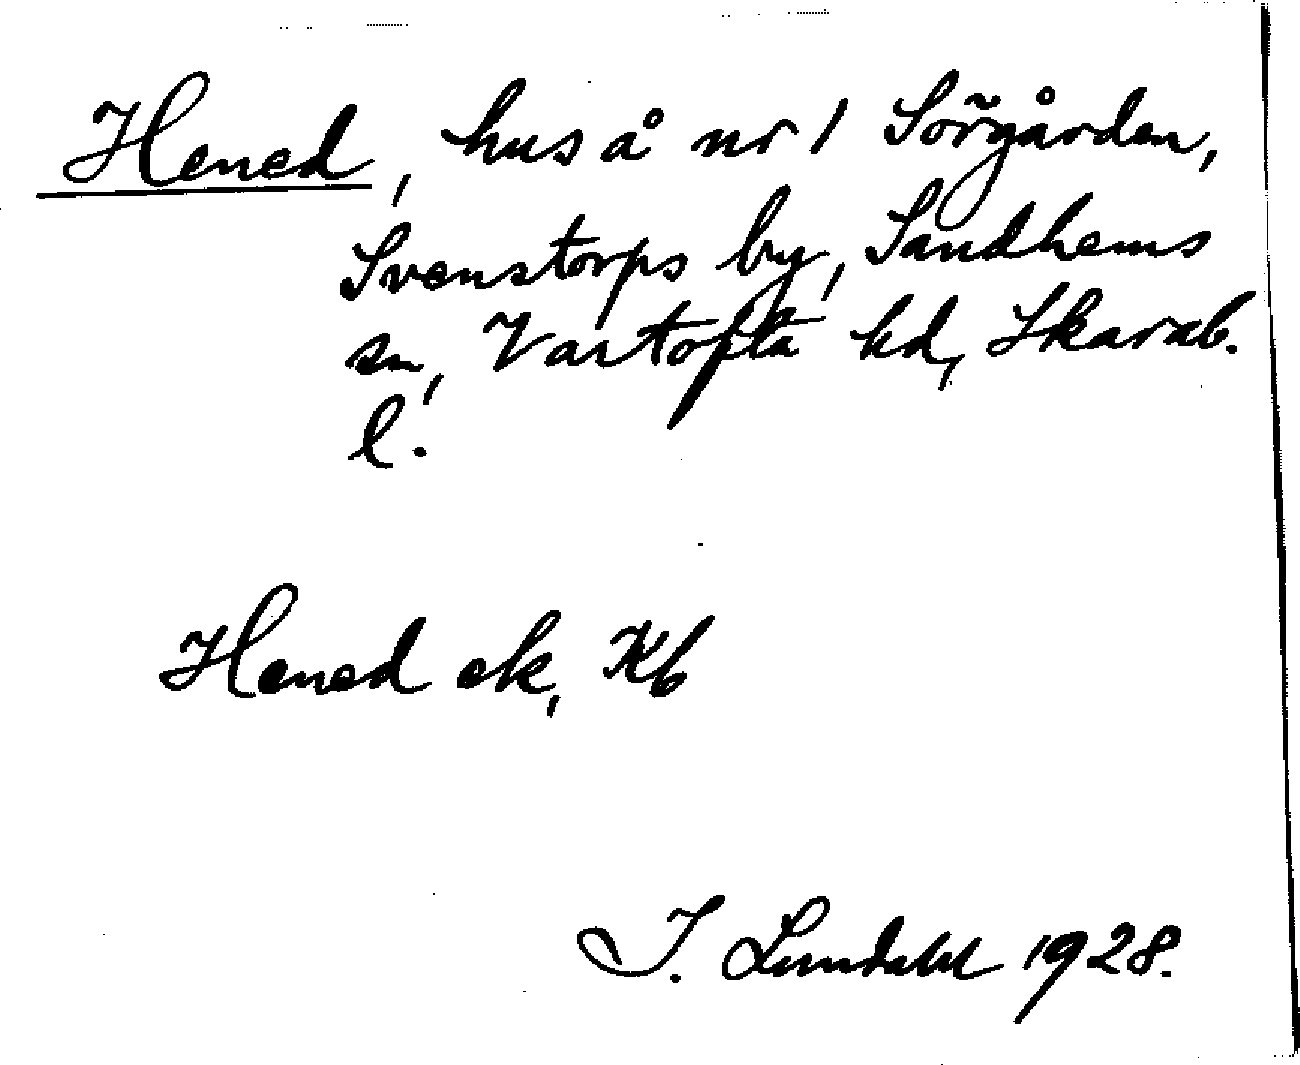 Hened, hus å nr 1 Sörgården,
Svenstorps by, Sandhems
sn, Vartofta hd, Skarab.
l.
Hened ek, Kb
I. Lundahl 1928.